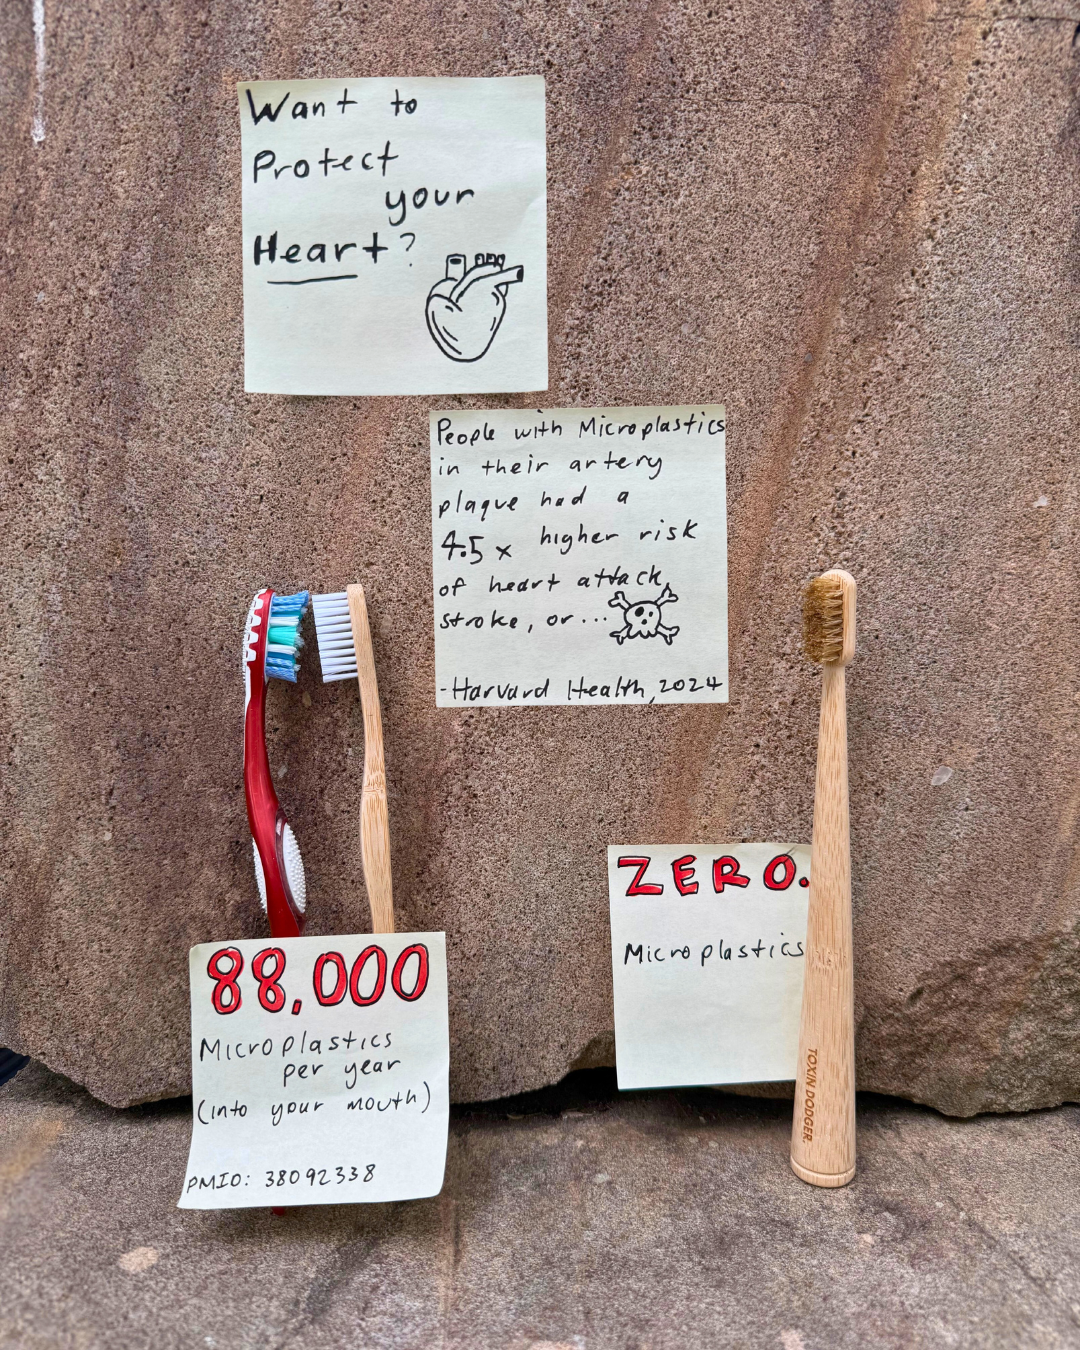 Want to
Protect
your
Heart?
People with Microplastics
in their artery
plaque had a
4.5x higher risk
of heart attack,
stroke, or...
-Harvard Health, 2024
88,000
Microplastics
per year
(into your mouth)
PMID: 38092338
ZERO.
Microplastics
TOXIN DODGER.